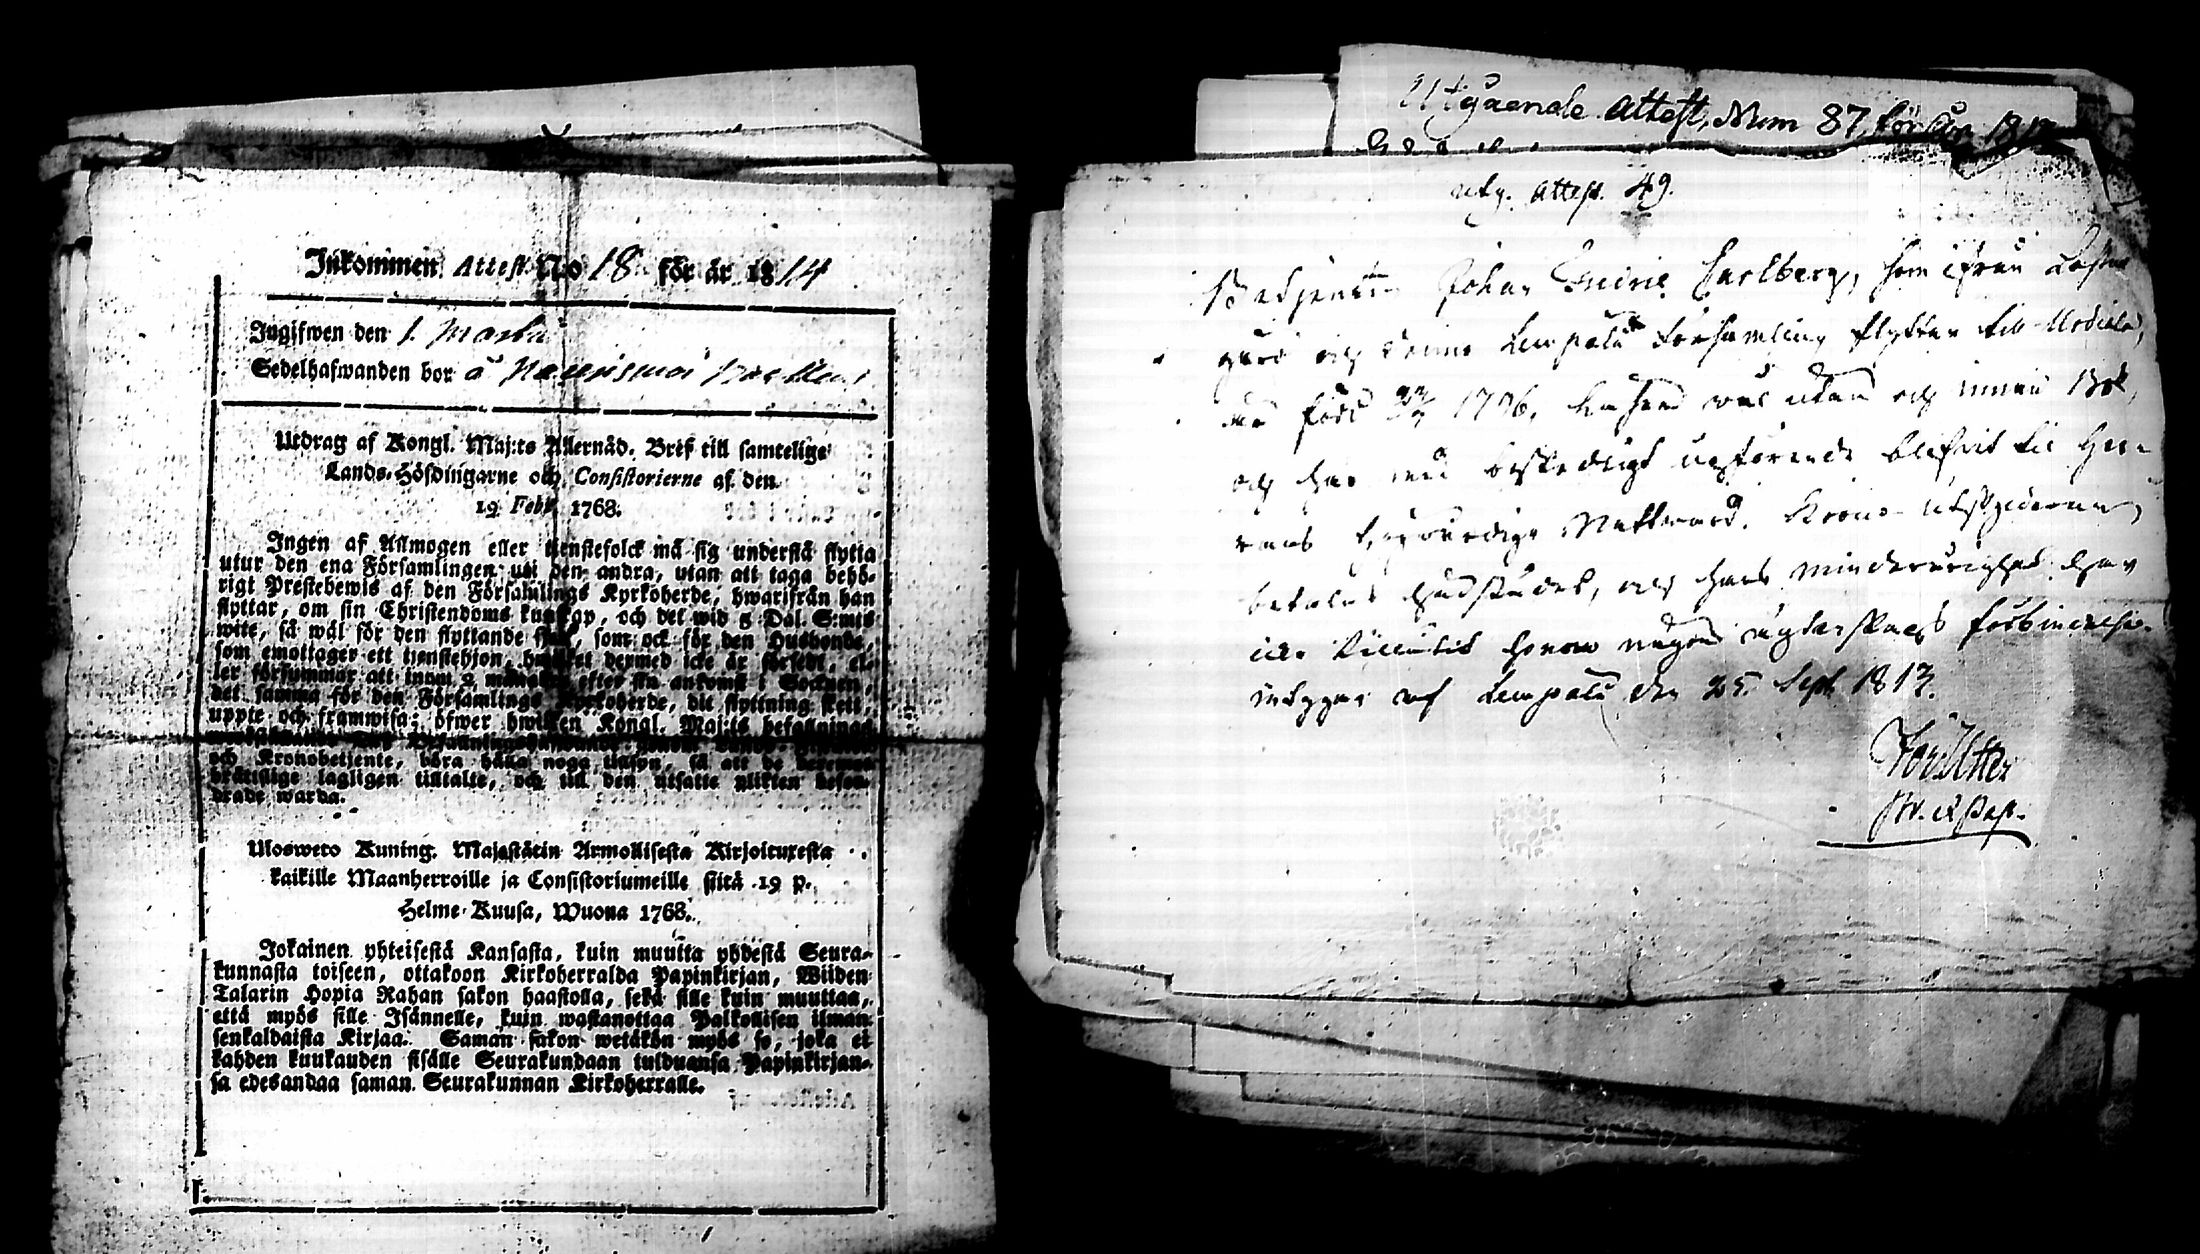 Inkommen Attest No 18 för år 1814
Ingifwen den 1. Martii
Sedelhafwanden bor å
Utdrag af Kongl. Maj:ts Allernåd. Bref till samtelige
Lands-Höfdingarne och Consistorierne af den
19 Febr. 1768.
Ingen af Allmogen eller tienstefolck må sig understå flytta
utur den ena Församlingen uti den andra, utan att taga behö-
rigt Prestebewis af den Församlings Kyrkoherde, hwarifrån han
flyttar, om sin Christendoms kunskap, och det wid 5 Dal. S:mts
wite, så wäl för den flyttande sielf, som ock för den Husbonde,
som emottager ett tienstehjon, hwilket dermed icke är försedt, el-
ler försummar att inom 2 månader efter sin ankomst i Socknen,
det samma för den Församlings Kyrkoherde, dit flyttning skett,
uppte och framwisa; öfwer hwilken Kongl. Maj:ts befallnings
och Kronobetjente, böra hålla noga tillsyn, så att de deremot
bråttslige lagligen tilltalte, och till den utsatte plikten befor-
drade warda.
Ulosweto Kuning. Majestätin Armollisesta Kirjoituxesta
kaikille Maanherroille ja Consistoriumeille siitä 19 p.
Helme-Kuusa, Wuona 1768.
Jokainen yhteisestä Kansasta, kuin muutta yhdestä Seura-
kunnasta toiseen, ottakoon Kirkoherralda Papinkirjan, Wiiden
Talarin Hopia Rahan sakon haastolla, sekä sille kuin muuttaa,
että myös sille Isännelle, kuin wastanottaa Palkollisen ilman
senkaldaista Kirjaa. Saman sakon wetäkön myös se, joka ei
kahden kuukauden sisälle Seurakundaan tulduansa Papinkirjan-
sa edesandaa saman Seurakunnan Kirkoherralle.
Utgående Attest, Num 87, för År 1813
utg. Attest. 49.
Betjenten Johan Carlberg, som ifrån
gård och Lempälä Församling flyttar till
född 1796, läser wäl utan och innan Bok,
och har med beskedligt uppförande blifwit til Her-
rans högwärdige Nattward. Krono-utskylderna
betalas och hans minderårighet har
icke tillåtit honom någon ägtenskaps förbindelse
intygar af Lempälä den 25. Sept. 1813.